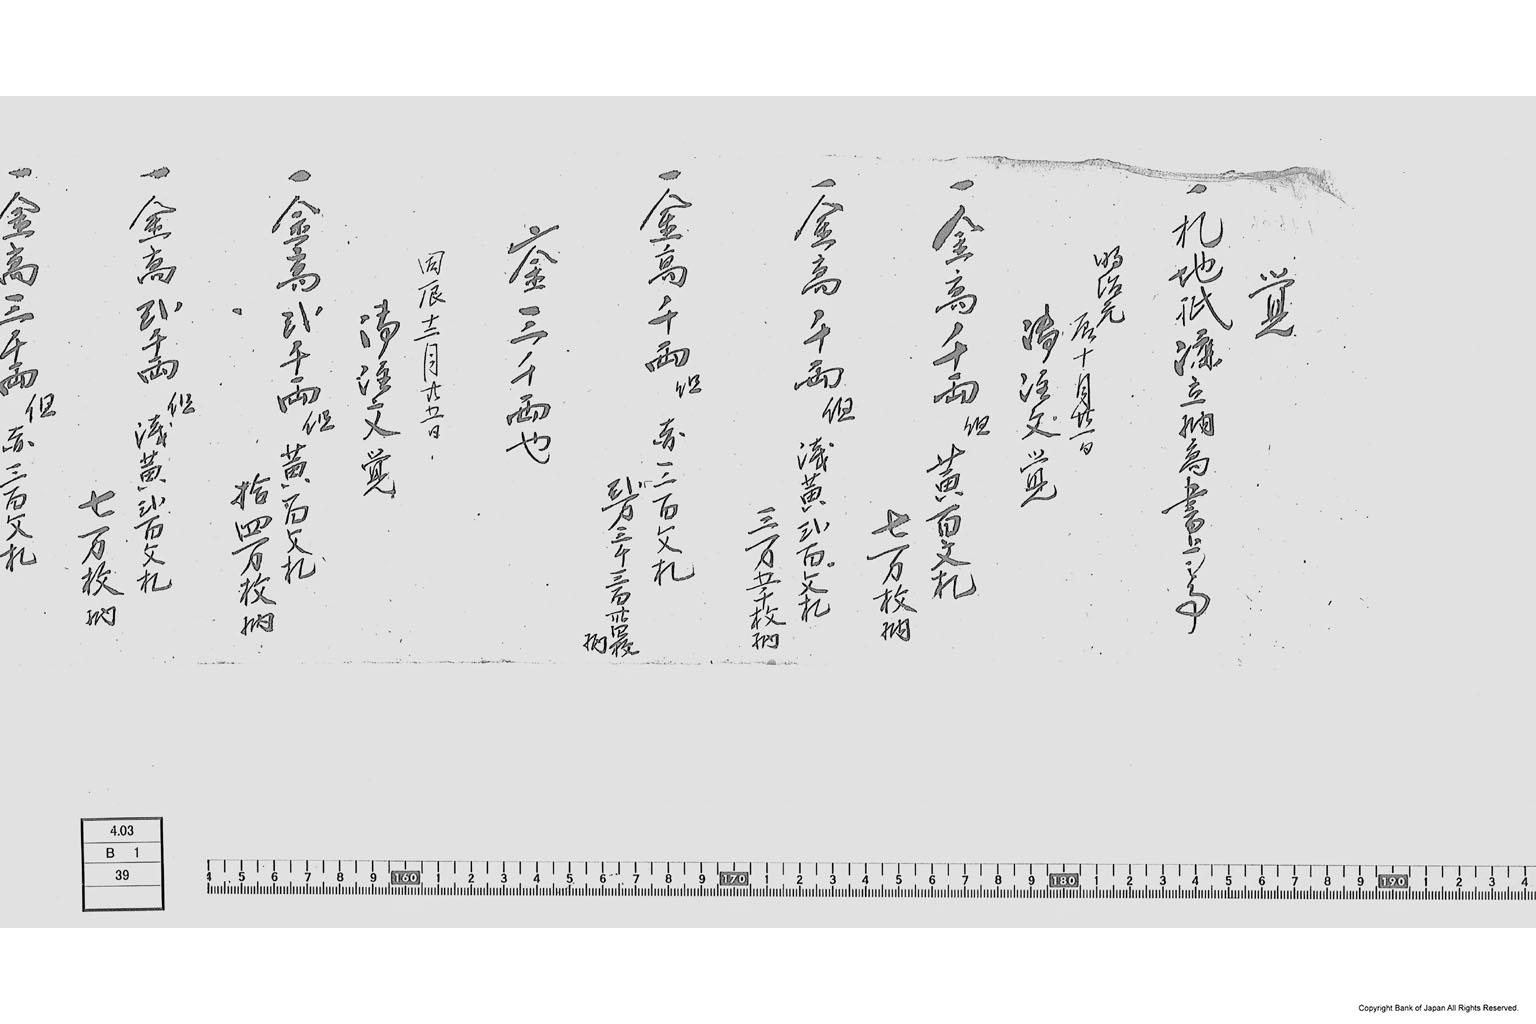 覚
一札地紙漉立納高書上ヶ高
明治元
辰十月廿一日
御注文覚
一金高千両但黄百文札
七万枚納
一金高千両但浅黄弐百文札
三万五千枚納
一金高千両但赤三百文札
弐万三千三百
納
〆金三千両也
同辰十二月廿五日
御注文覚
一金高弐千両但黄百文札
拾四万枚納
一金高弐千両但浅黄弐百文札
七万枚納
一金高三千両但赤三百文札
4.03
B 1
39
4 5 6 7 8 9 160 1 2 3 4 5 6 7 8 9 170 1 2 3 4 5 6 7 8 9 180 1 2 3 4 5 6 7 8 9 190 1 2 3 4
Copyright Bank of Japan All Rights Reserved.